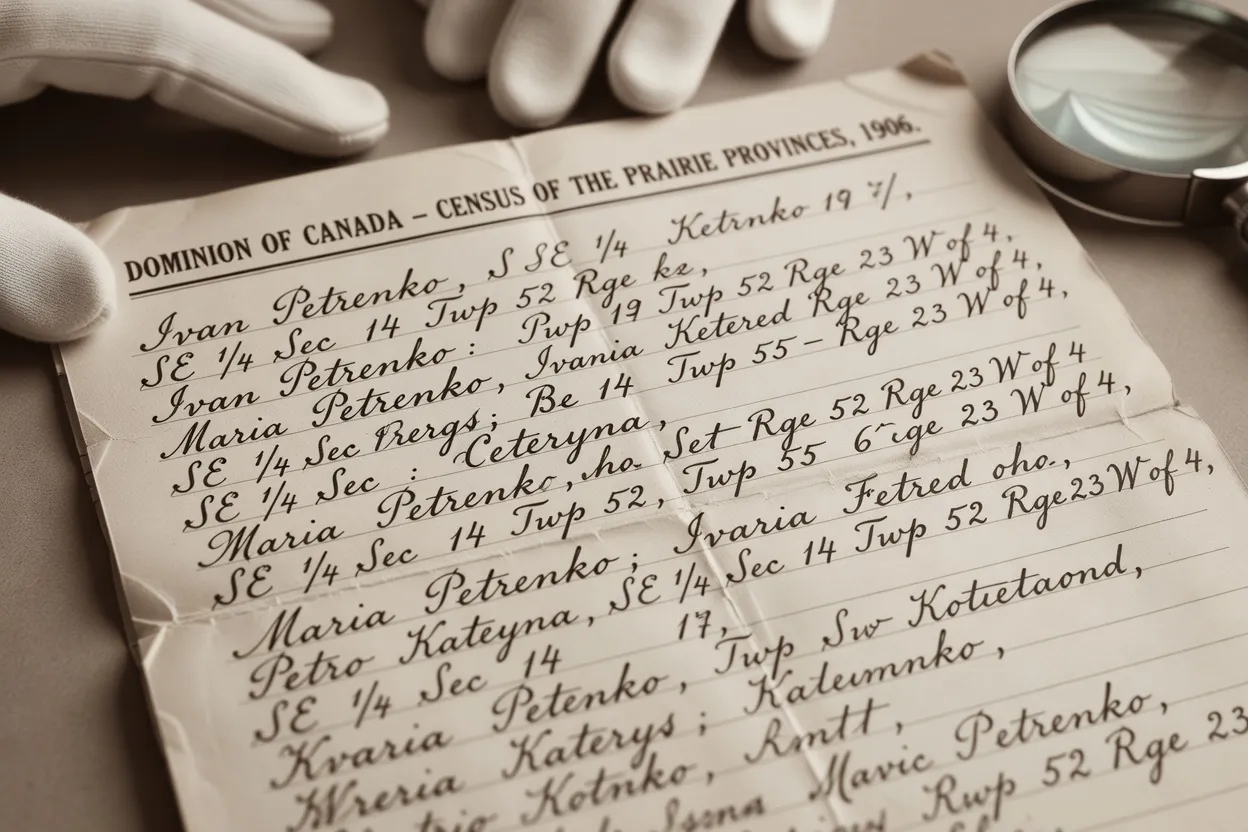 DOMINION OF CANADA – CENSUS OF THE PRAIRIE PROVINCES, 1906.
Ivan Petrenko, S SE 1/4 Ketrnko 19
SE 1/4 Sec 14 Twp 52 Rge kz,
Ivan Petrenko: Pwp 19 Twp 52 Rge 23 W of 4,
Maria Petrenko, Ivania Ketered Rge 23 W of 4,
SE 1/4 Sec Rergs; Be 14 Twp 55 – Rge 23 W of 4,
SE 1/4 Sec : Ceteryna,
Maria Petrenko, ho. Set Rge 52 Rge 23 W of 4
SE 1/4 Sec 14 Twp 52, Twp 55 23 W of 4,
Maria Petrenko; Ivaria Fetred oho.,
Petro Kateyna, SE 1/4 Sec 14 Twp 52 Rge 23 W of 4,
SE 1/4 Sec 14 17,
Kvaria Petenko, Twp Sw Kotietaond,
Wreria Katerys; Kaleumnko,
Kotnko, Rmtt,
Mavic Petrenko,
Rwp 52 Rge 23